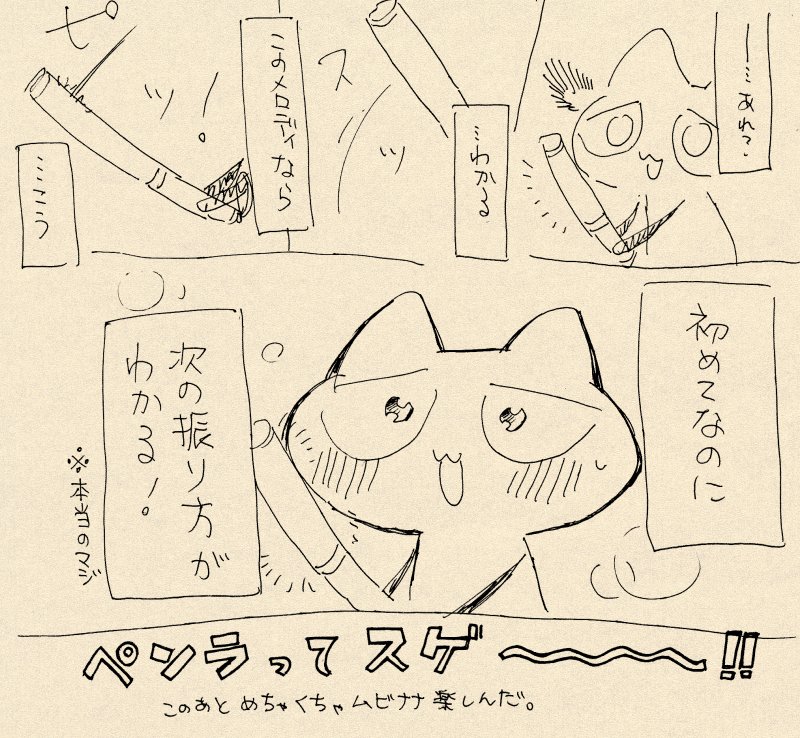 …あれ?
…わかる
スッ
このメロディなら
ピッ!
……こう
初めてなのに
次の振り方が
わかる!
※本当のマジ
ペンラってスゲ〜〜〜!!
このあとめちゃくちゃムビナナ楽しんだ。